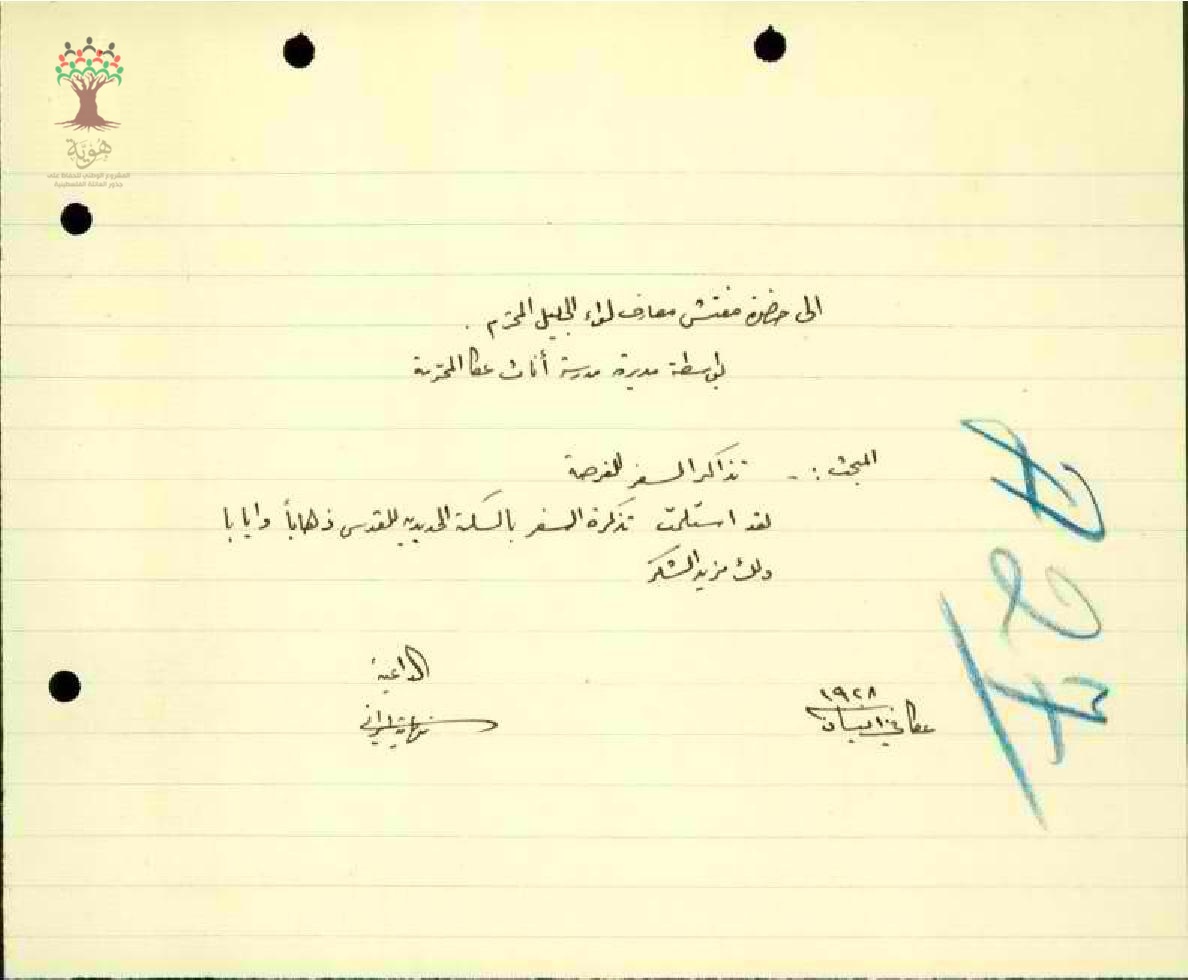 هُوِيَّة
المشروع الوطني للحفاظ على
جذور العائلة الفلسطينية
الى حضرة مفتش معارف لواء الجليل المحترم .
بواسطة مديرة مدرسة أناث عكا المحترمة
المبحث :- تذاكر السفر للفرصة
لقد استلمت تذكرة السفر بالسكة الحديدية للقدس ذهاباً وايابا
ولك مزيد الشكر
الداعية
١٩٢٨
عكا في ١٠ نيسان